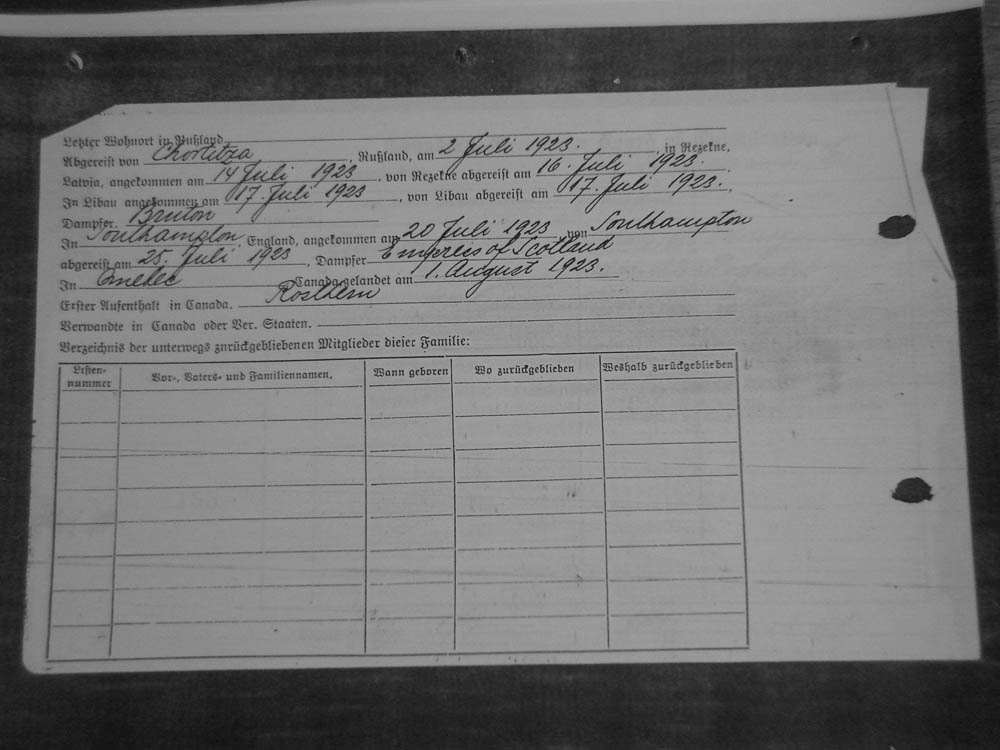 Letzter Wohnort in Rußland
Abgereist von Chortitza, Rußland, am 2 Juli 1923. in Rezekne,
Latvia, angekommen am 14 Juli 1923, von Rezekne abgereist am 16. Juli 1923.
In Libau angekommen am 17. Juli 1923, von Libau abgereist am 17. Juli 1923.
Dampfer. Bruton
In Southampton, England, angekommen am 20 Juli 1923 von Southampton
abgereist am 25. Juli 1923, Dampfer Empress of Scotland
In Quebec Canada gelandet am 1. August 1923.
Erster Aufenthalt in Canada. Rosthern
Verwandte in Canada oder Ver. Staaten.
Verzeichnis der unterwegs zurückgebliebenen Mitglieder dieser Familie:
Listen-nummer Vor-, Vaters- und Familiennamen. Wann geboren Wo zurückgeblieben Weshalb zurückgeblieben